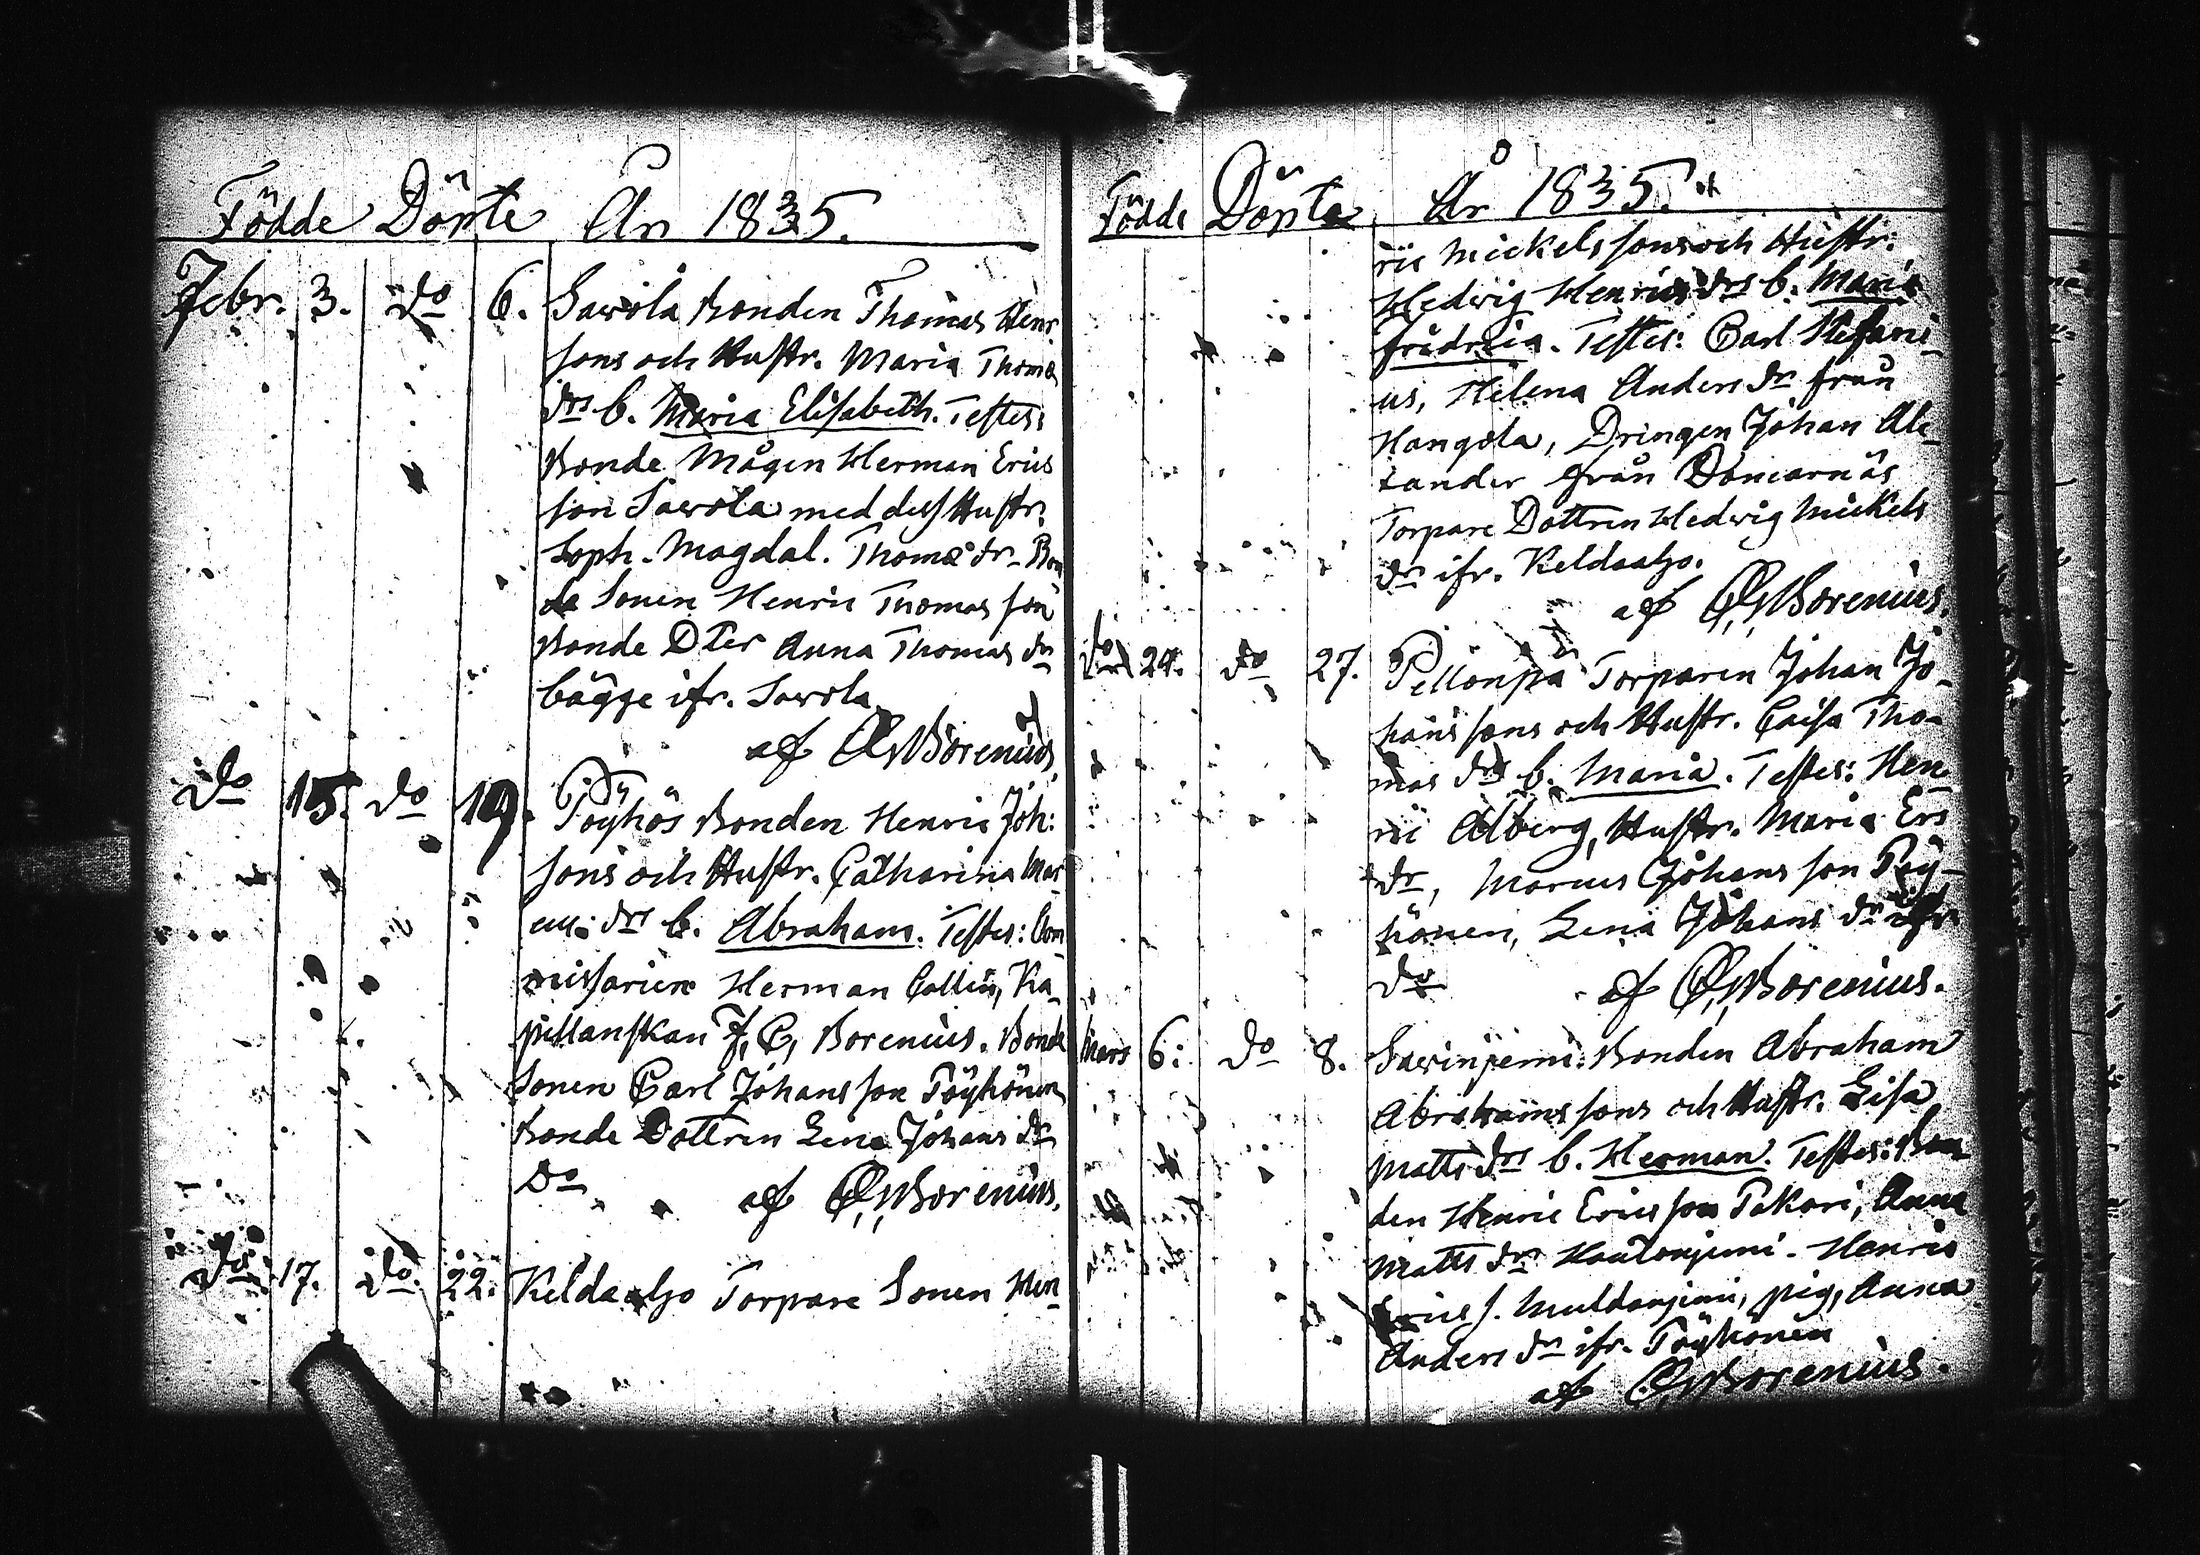 Födde Döpte År 1835.
Febr. 3. Do 6. Sawola Bonden Thomas Henr
sons och Hustr. Maria Thomæ
drs b. Maria Elisabeth. Testes:
Bonde Mågen Herman Erics
son Sawola med dess Hustr.
Soph. Magdal. Thomæ dr. Bon
de Sonen Henric Thomas son
Bonde Dter Anna Thomas dr
bägge ifr. Sawola
af C,G,Borenius,
Do 15. Do 19. Pöyhös Bonden Henric Joh:
sons och Hustr. Catharina Mar
cus: drs b. Abraham. Testes: Com
missarien Herman Collin, Ka-
pillanskan F, C, Borenius. Bonde
Sonen Carl Johans son Pöyhönen
Bonde Dottren Lena Johans dr
Do af C,G,Borenius.
Do 17. Do. 22. Keldaaljo Torpare Sonen Hen-
Födde Döpte År 1835.
ric Mickels sons och Hustr:
Hedwig Henrics drs b. Maria
Fridrica. Testes: Carl Stefani-
us, Helena Anders dr från
Hangola, Drängen Johan Ale-
xander från Domarnäs
Torpare Dottren Hedwig Mickels
dr ifr. Keldaaljo.
af C,G,Borenius.
Do 24. Do 27. Pellonpä Torparen Johan Jo-
hans sons och Hustr. Caisa Tho-
mas drs b. Maria. Testes: Hen-
ric Alberg, Hustr. Maria Ers
dr, Marcus Johans son Pöy-
hönen, Lena Johans dr ifr
Do af C,G,Borenius.
Mars 6: Do 8. Sawinjemi: Bonden Abraham
Abrahams sons och Hustr. Lisa
Matts drs b. Herman. Testes: Bon
den Henric Erics son Pakari, Anna
Matts dr Hautonjemi. Henric
Erics s. Multanjemi, pig, Anna
Anders dr ifr. Pöyhönen
af C,G,Borenius.